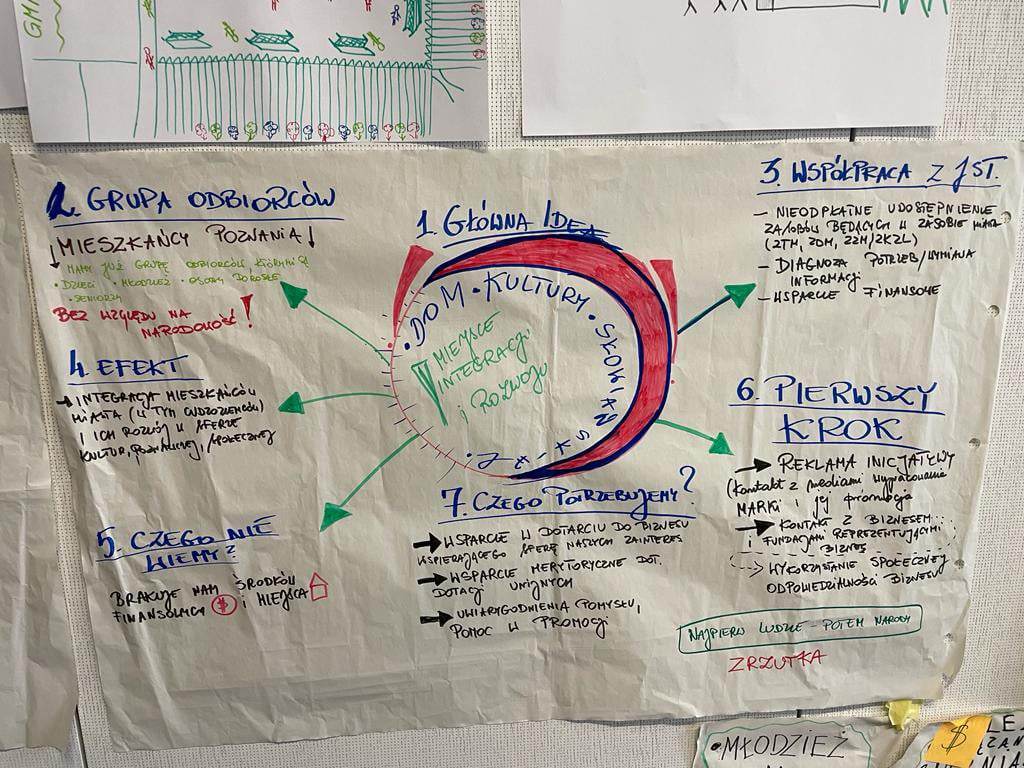 1. GŁÓWNA IDEA
DOM • KULTURY • SŁOWIAŃSKI
MIEJSCE
INTEGRACJI
i ROZWOJU
2. GRUPA ODBIORCÓW
MIESZKAŃCY POZNANIA
MAMY JUŻ GRUPĘ ODBIORCÓW
• DZIECI • MŁODZIEŻ • OSOBY DOROSŁE
• SENIORZY
BEZ WZGLĘDU NA
NARODOWOŚĆ!
3. WSPÓŁPRACA Z JST.
– NIEODPŁATNE UDOSTĘPNIENIE
ZASOBÓW BĘDĄCYCH W ZASOBIE MIASTA
(ZTM, ZDM, ZZM/ZKZL)
– DIAGNOZA POTRZEB/WYMIANA
INFORMACJI
– WSPARCIE FINANSOWE
4. EFEKT
INTEGRACJA MIESZKAŃCÓW
MIASTA (W TYM CUDZOZIEMCÓW)
I ICH ROZWÓJ W SFERZE
KULTUR, POZNAWCZEJ, SPOŁECZNEJ
5. CZEGO NIE
WIEMY?
BRAKUJE NAM ŚRODKÓW
FINANSOWYCH $ i MIEJSCA
6. PIERWSZY
KROK
REKLAMA INICJATYWY
(kontakt z mediami wypracowanie
MARKI i jej promocja
KONTAKT Z BIZNESEM
i FUNDACJAMI REPREZENTUJĄCYMI
BIZNES
WYKORZYSTANIE SPOŁECZNEJ
ODPOWIEDZIALNOŚCI BIZNESU
7. CZEGO POTRZEBUJEMY?
WSPARCIE W DOTARCIU DO BIZNESU
WSPIERAJĄCEGO SFERĘ NASZYCH ZAINTERES
WSPARCIE MERYTORYCZNE DOT.
DOTACJI UNIJNYCH
UWIARYGODNIENIA POMYSŁU,
POMOC W PROMOCJI
NAJPIERW LUDZIE – POTEM NARODY
ZRZUTKA
• MŁODZIEŻ
$